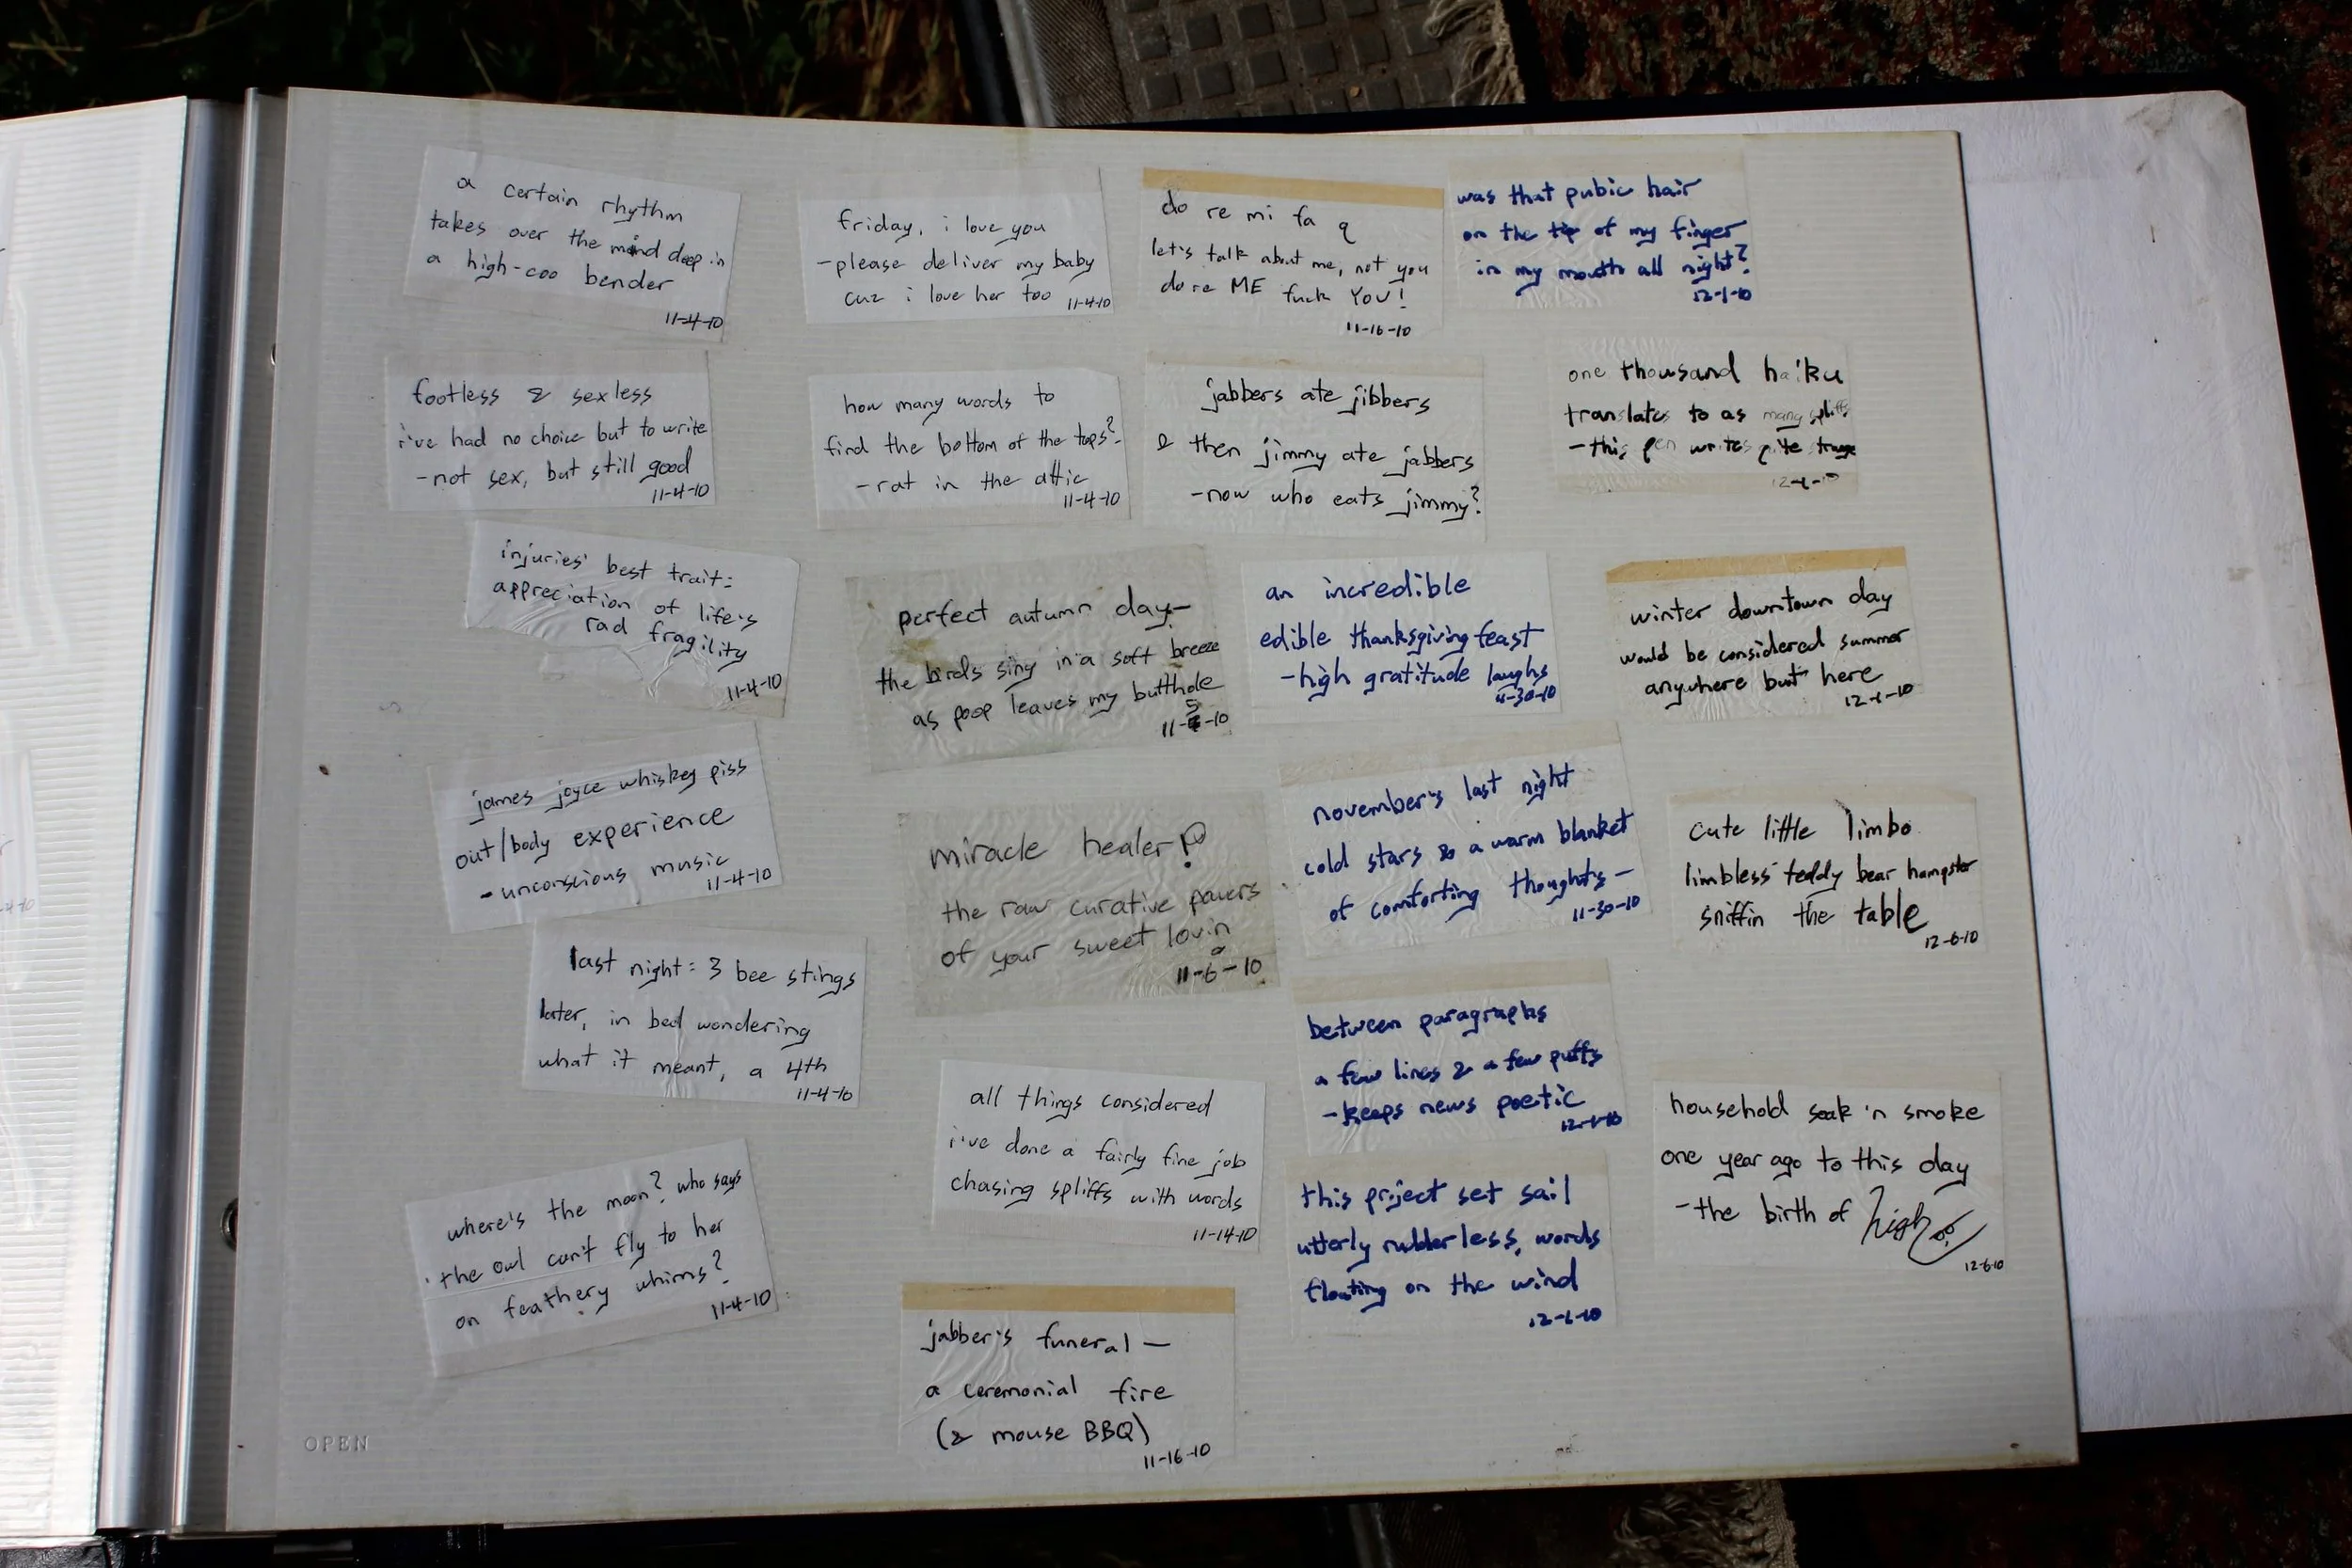 a certain rhythm
takes over the mind deep in
a high-coo bender
11-4-10
footless & sexless
i've had no choice but to write
-not sex, but still good
11-4-10
injuries' best trait:
appreciation of life's
rad fragility
11-4-10
james joyce whiskey piss
out/body experience
-unconscious music
11-4-10
last night: 3 bee stings
later, in bed wondering
what it meant, a 4th
11-4-10
where's the moon? who says
the owl can't fly to her
on feathery whims?
11-4-10
OPEN
friday, i love you
-please deliver my baby
cuz i love her too
11-4-10
how many words to
find the bottom of the tops?
-rat in the attic
11-4-10
perfect autumn day-
the birds sing in a soft breeze
as poop leaves my butthole
11-5-10
miracle healer!?
the raw curative powers
of your sweet lovin
11-6-10
all things considered
i've done a fairly fine job
chasing spliffs with words
11-14-10
jabber's funeral —
a ceremonial fire
(& mouse BBQ)
11-16-10
do re mi fa q
let's talk about me, not you
do re ME fuck YOU!
11-16-10
jabbers ate jibbers
& then jimmy ate jabbers
-now who eats jimmy?
an incredible
edible thanksgiving feast
-high gratitude laughs
11-30-10
november's last night
cold stars & a warm blanket
of comforting thoughts —
11-30-10
between paragraphs
a few lines & a few puffs
-keeps news poetic
12-1-10
this project set sail
utterly rudderless, words
floating on the wind
12-1-10
was that pubic hair
on the tip of my finger
in my mouth all night?
12-1-10
one thousand haiku
translates to as many spliffs
-this pen writes quite strange
12-1-10
winter downtown day
would be considered summer
anywhere but here
12-1-10
cute little limbo
limbless teddy bear hampster
sniffin the table
12-6-10
household soak 'n smoke
one year ago to this day
-the birth of high
12-6-10